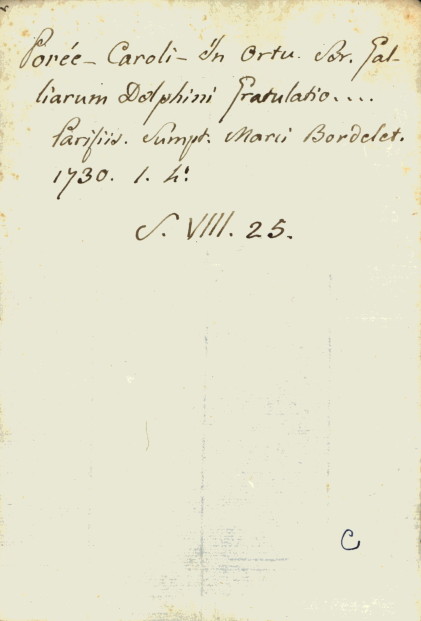 Porée - Caroli - In Ortu. Ser. Gal-
liarum Dolphini Gratulatio....
Parisiis. Sumpt. Marci Bordelet.
1730. 1. 4º
S. VIII. 25.
C